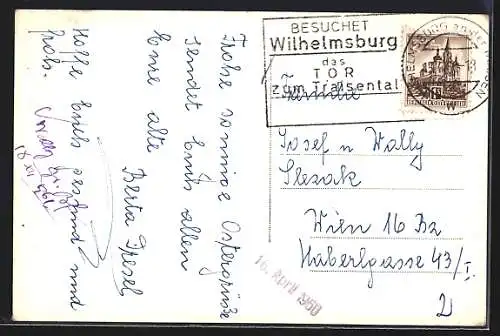 Frohe sonnige Ostergrüße
sendet Euch allen
Eure alte
Berta
Hoffe Euch gesund und
froh.
BESUCHET
Wilhelmsburg
das
TOR
zum Traisental
WILHELMSBURG an der TRAISEN
Familie
Josef u Wally
Slezak
Wien 16 Bz
Haberlgasse 43/I.
2
16. April 1960